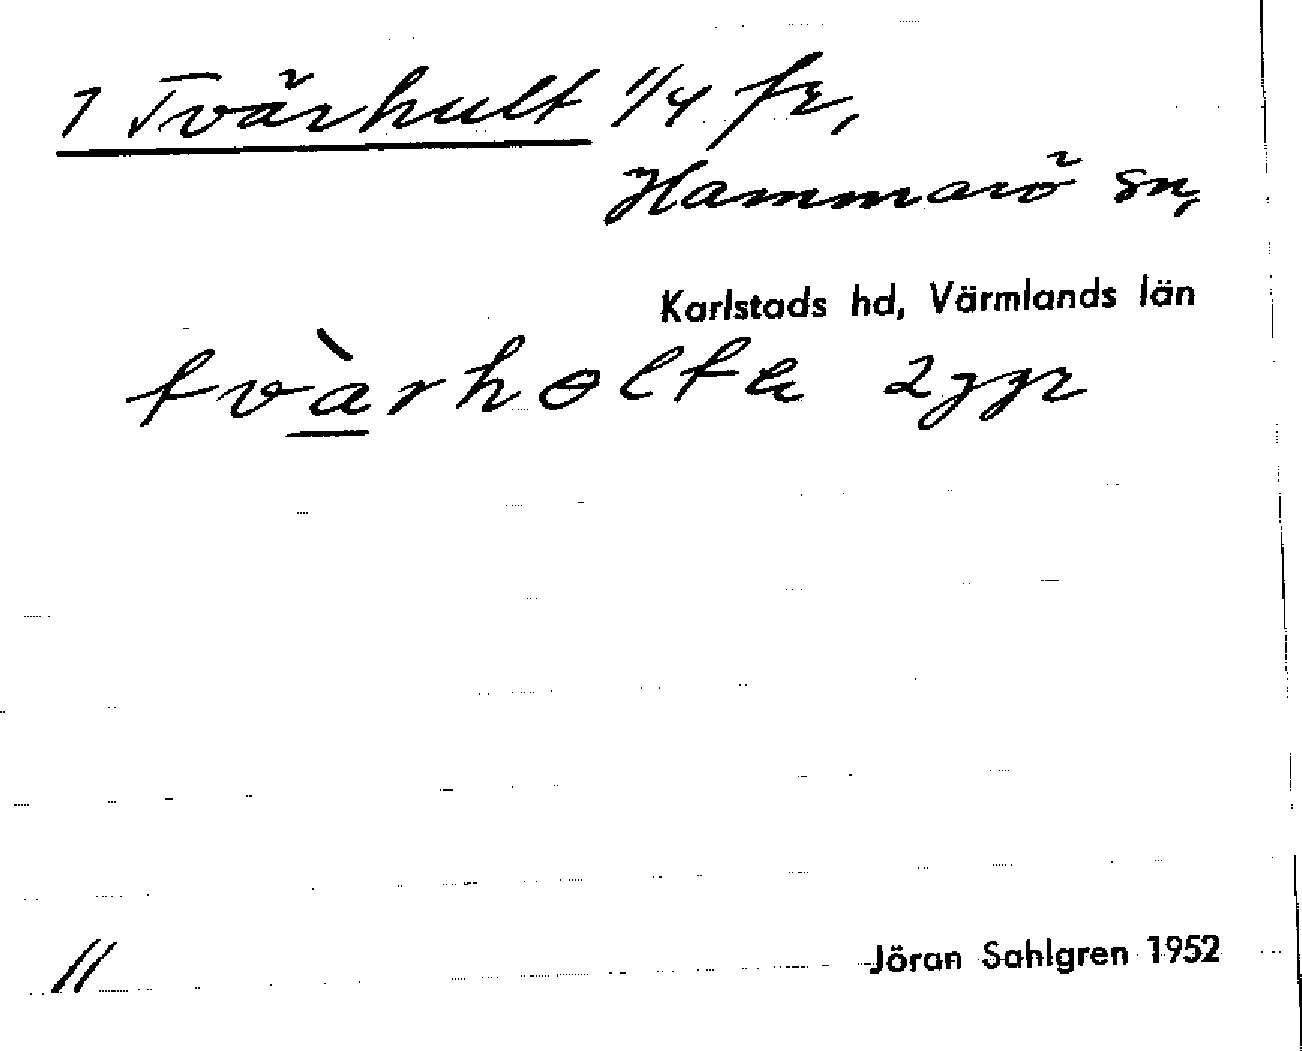 1 Tvärhult 1/4 fr,
Hammarö sn,
Karlstads hd, Värmlands län
tvàrholta 2 ggr
11
Jöran Sahlgren 1952